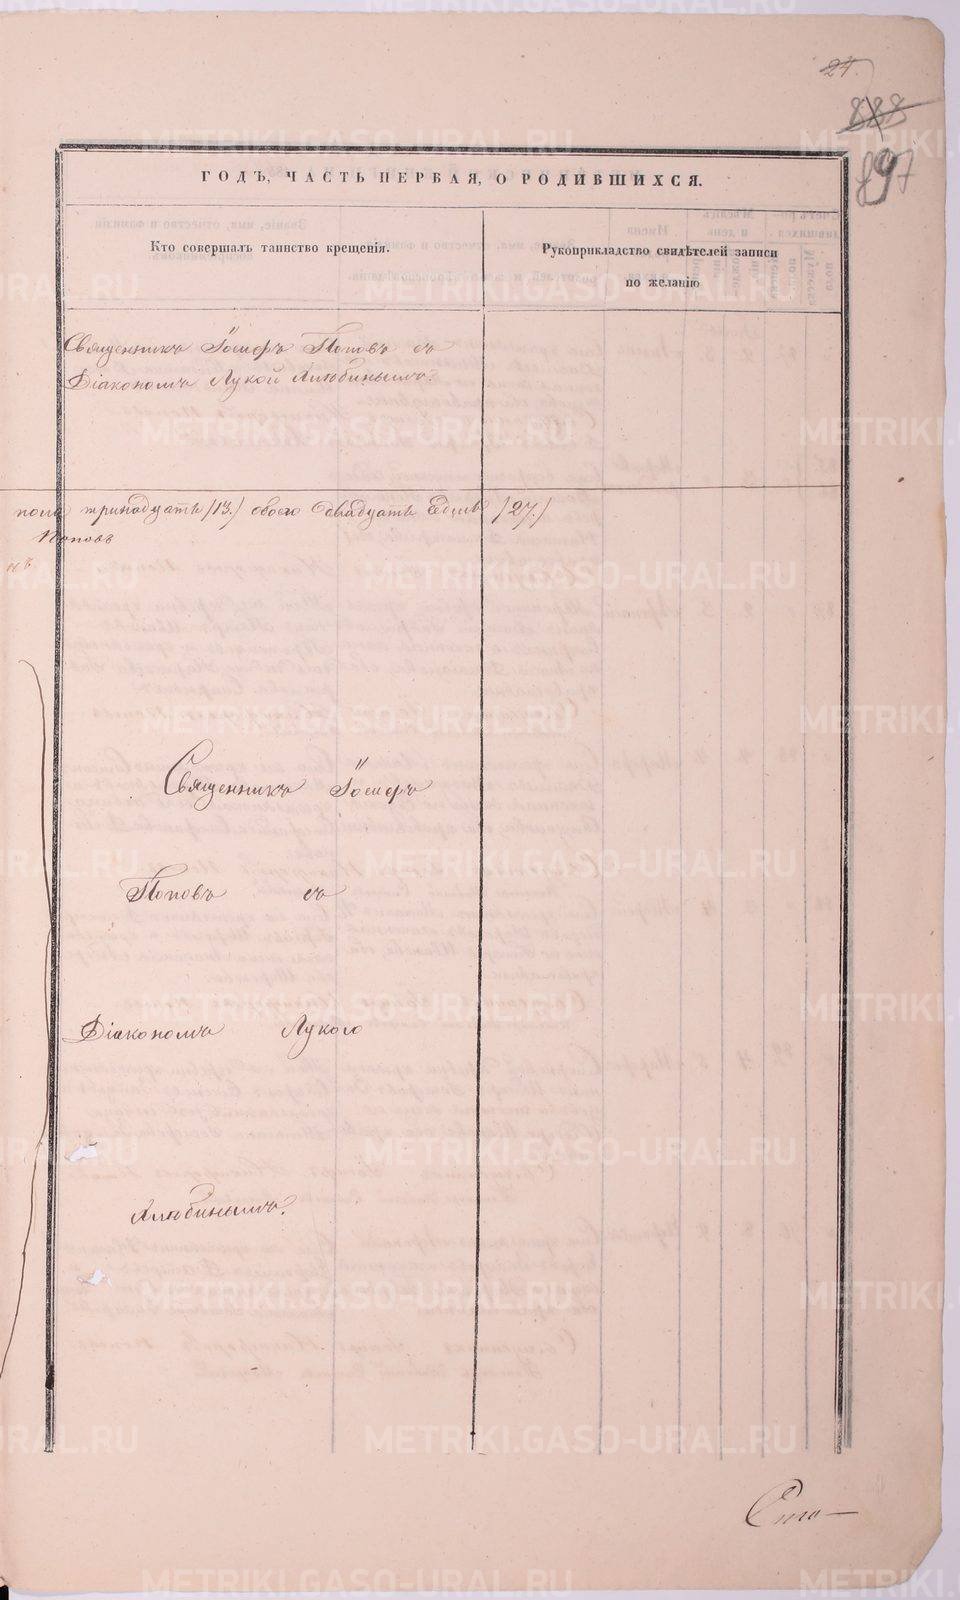 24.
888
897
ГОДЪ, ЧАСТЬ ПЕРВАЯ, О РОДИВШИХСЯ.
Кто совершалъ таинство крещенія.
Рукоприкладство свидѣтелей записи
по желанію
Священникъ Іосифъ Поповъ съ
Діакономъ Лукой Алюбинымъ.
пола тринадцать /13./ обоего двадцать /27./
Поповъ
Священникъ Іосифъ
Поповъ съ
Діакономъ Лукою
Алюбинымъ.
METRIKI.GASO-URAL.RU